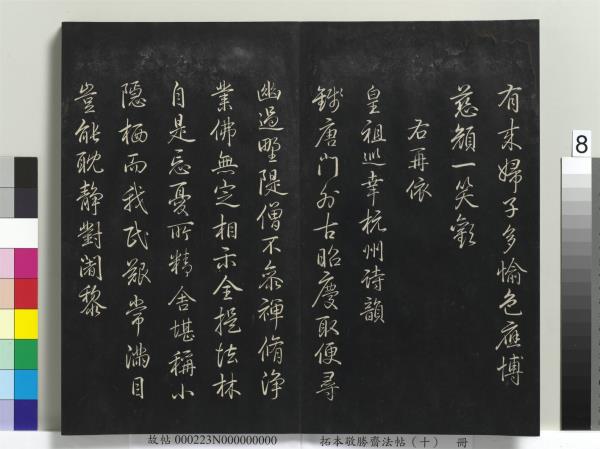 有來婦子多愉色應博
慈顏一笑歡
右再依
皇祖巡幸杭州詩韻
錢唐門外古昭慶取便尋
幽過野隄僧不參禪脩淨
業佛無定相示金提法林
自是忘憂所精舍堪稱小
隱栖而我民艱常滿目
豈能耽靜對闍黎
8
故帖 000223N000000000
拓本敬勝齋法帖（十） 冊